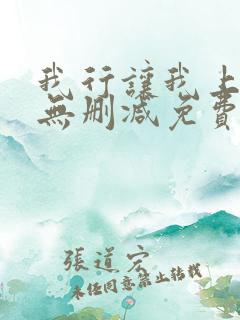 我行讓我上
無刪減免費
張道宏
未经同意禁止转载